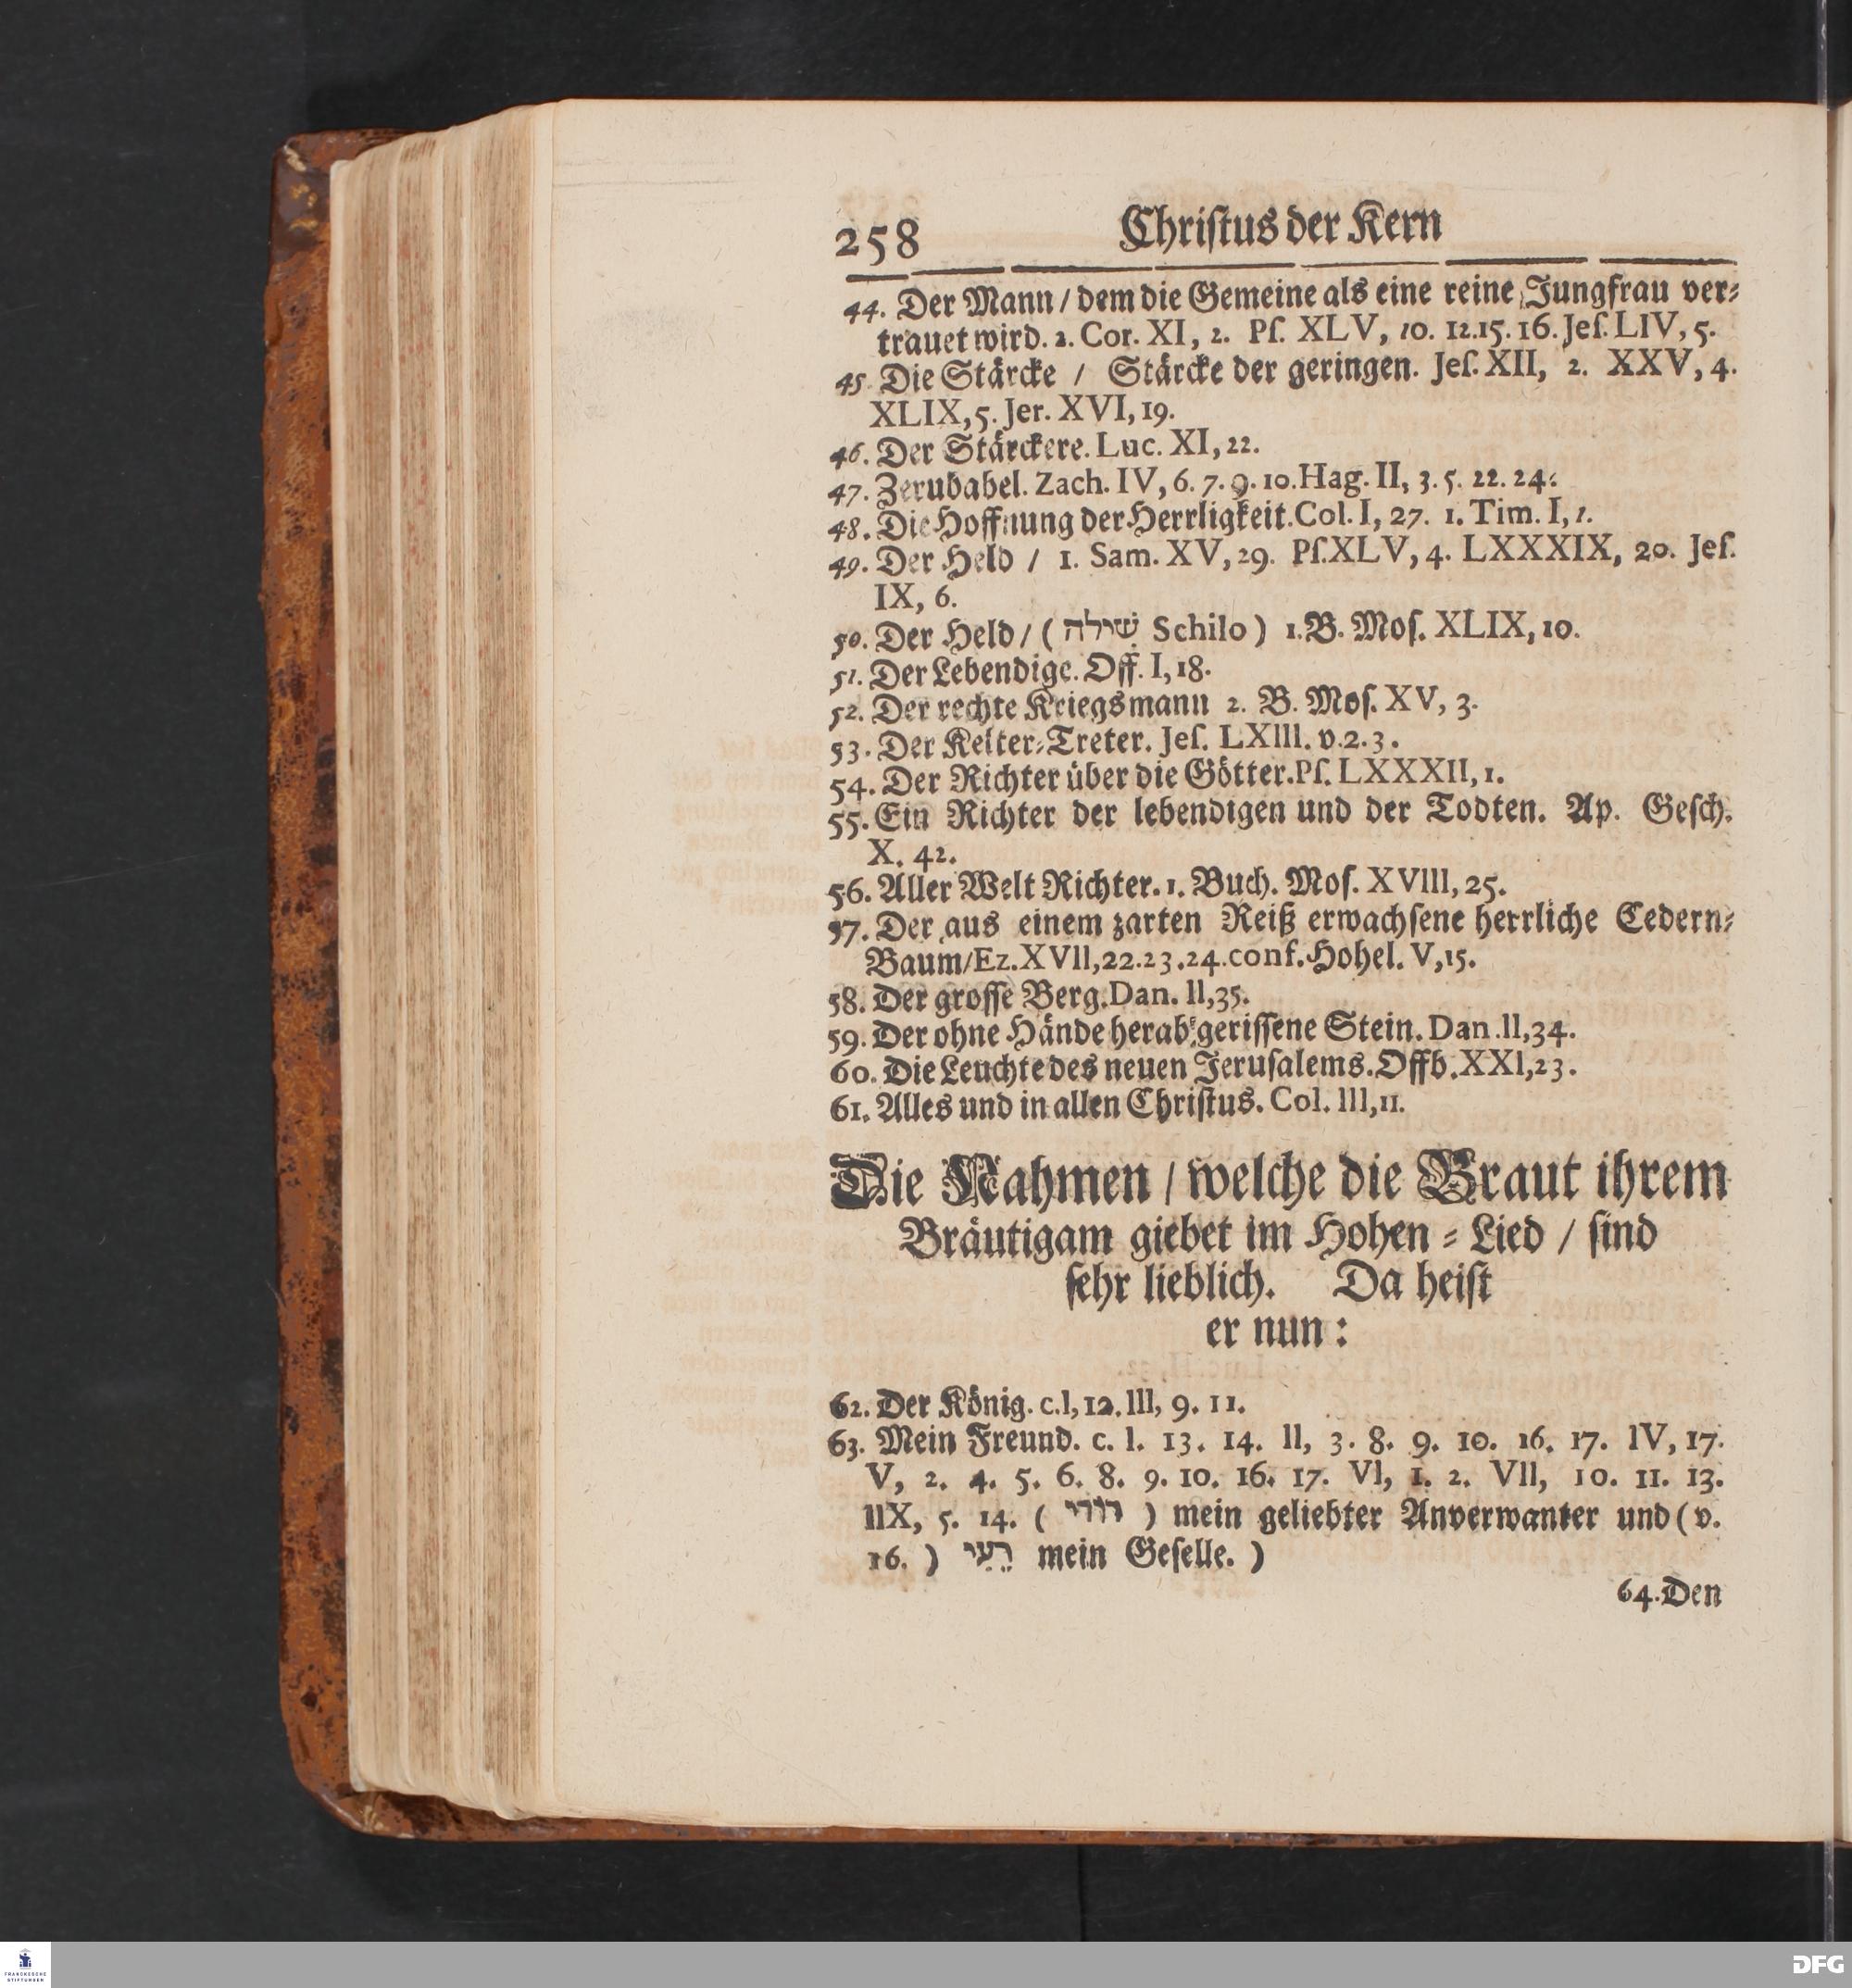 258 Christus der Kern
44. Der Mann / dem die Gemeine als eine reine Jungfrau ver⸗
trauet wird. 2. Cor. XI, 2. Pſ. XLV, 10. 12.15. 16. Jeſ. LIV, 5.
45. Die Stärcke / Stärcke der geringen. Jeſ. XII, 2. XXV, 4.
XLIX, 5. Jer. XVI, 19.
46. Der Stärckere. Luc. XI, 22.
47. Zerubabel. Zach. IV, 6. 7. 9. 10. Hag. II, 3. 5. 22. 24.
48. Die Hoffnung der Herrligkeit. Col. I, 27. 1. Tim. I, 1.
49. Der Held / 1. Sam. XV, 29. Pſ. XLV, 4. LXXXIX, 20. Jeſ.
IX, 6.
50. Der Held / ( שׁילה Schilo ) 1. B. Moſ. XLIX, 10.
51. Der Lebendige. Off. I, 18.
52. Der rechte Kriegsmann 2. B. Moſ. XV, 3.
53. Der Kelter⸗Treter. Jeſ. LXIII. v. 2. 3.
54. Der Richter über die Götter. Pſ. LXXXII, 1.
55. Ein Richter der lebendigen und der Todten. Ap. Geſch.
X. 42.
56. Aller Welt Richter. 1. Buch. Moſ. XVIII, 25.
57. Der aus einem zarten Reiß erwachſene herrliche Cedern⸗
Baum / Ez. XVII, 22. 23. 24. conf. Hohel. V, 15.
58. Der groſſe Berg. Dan. II, 35.
59. Der ohne Hände herab⸗geriſſene Stein. Dan. II, 34.
60. Die Leuchte des neuen Jeruſalems. Offb. XXI, 23.
61. Alles und in allen Chriſtus. Col. III, 11.
Die Nahmen / welche die Braut ihrem
Bräutigam giebet im Hohen⸗Lied / ſind
ſehr lieblich. Da heiſt
er nun :
62. Der König. c. I, 12. III, 9. 11.
63. Mein Freund. c. I. 13. 14. II, 3. 8. 9. 10. 16. 17. IV, 17.
V, 2. 4. 5. 6. 8. 9. 10. 16. 17. VI, 1. 2. VII, 10. 11. 13.
IIX, 5. 14. ( דודי ) mein geliebter Anverwanter und ( v.
16. ) רֵעִי mein Geſelle. )
64. Den
FRANCKESCHE
STIFTUNGEN
DFG